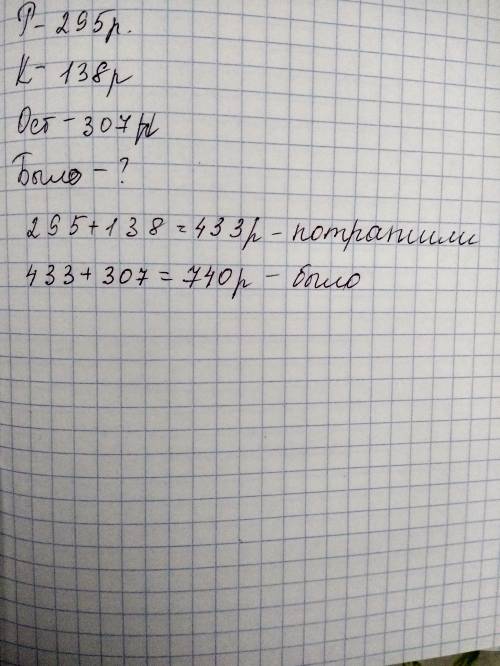 Р- 295р.
К- 138р
Ост - 307р
Было - ?
295+138=433р - потратили
433+307=740р - было